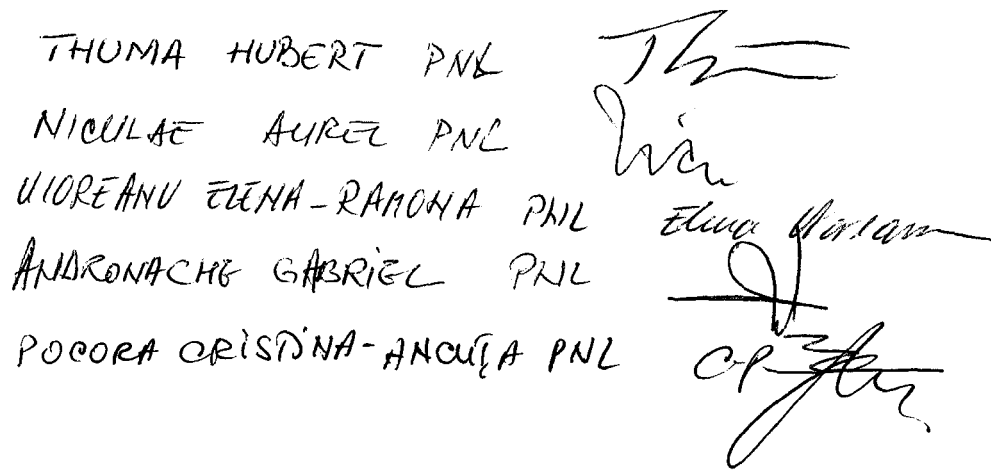 THUMA HUBERT PNL
NICULAE AUREL PNL
VIOREANU ELENA-RAMONA PNL Elena
ANDRONACHE GABRIEL PNL
POCORA CRISTINA-ANCUȚA PNL